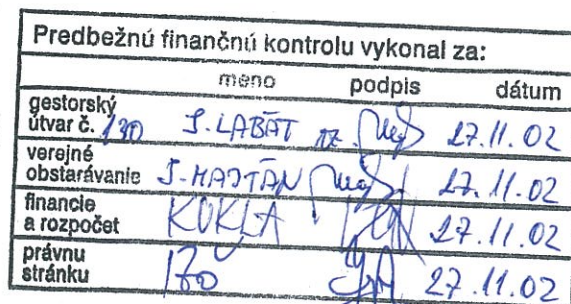 Predbežnú finančnú kontrolu vykonal za:
meno podpis dátum
gestorský
útvar č. 130 J. LABÁT 27.11.02
verejné
obstarávanie J. MAJTÁN 27.11.02
financie
a rozpočet KUKLA 27.11.02
právnu
stránku 27.11.02